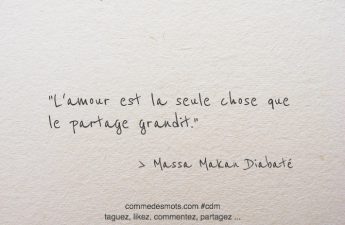 "L'amour est la seule chose que
le partage grandit."
> Massa Makan Diabaté
commedesmots.com #cdm
taguez, likez, commentez, partagez ...